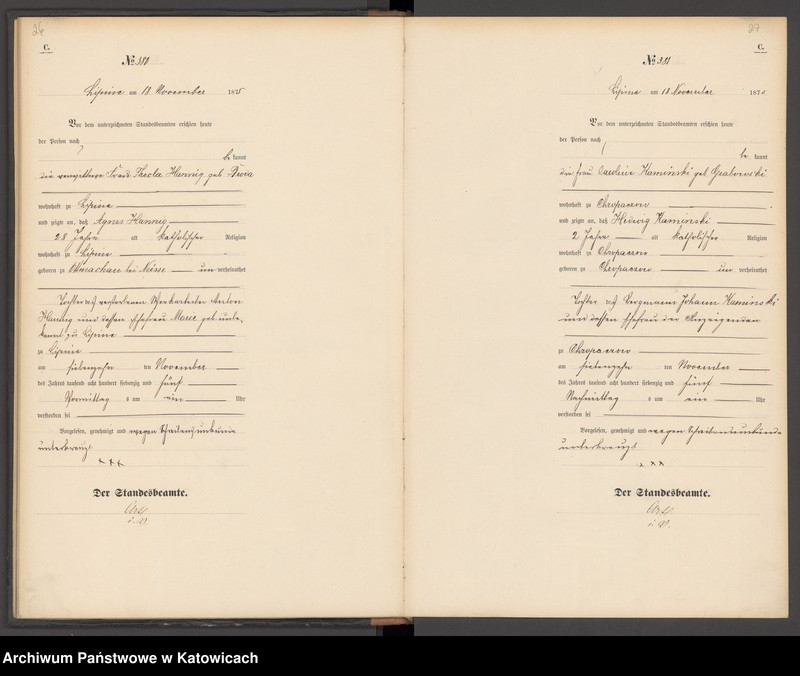 26
C.
№ 380
Lipine am 18 November 1875
Vor dem unterzeichneten Standesbeamten erschien heute
der Person nach
be kannt
die verwittwete Frau Thecla Hannig geb.
wohnhaft zu Lipine
und zeigte an, daß Agnes Hannig
28 Jahre alt katholischer Religion
wohnhaft zu Lipine
geboren zu Ottmachau bei Neisse un verheirathet
Tochter des verstorbenen Anton
Hannig und dessen Ehefrau Marie geb. unbe-
kannt zu Lipine
zu Lipine
am siebenzehn ten November
des Jahres tausend acht hundert siebenzig und fünf
Vormittag s um ein Uhr
verstorben sei
Vorgelesen, genehmigt und wegen Schreibensunkunde
unterkreuzt
+++
Der Standesbeamte.
i. V.
27
C.
№ 381
Lipine am 18 November 1875
Vor dem unterzeichneten Standesbeamten erschien heute
der Person nach
be kannt
die Frau Caroline Kaminski geb. Grabowski
wohnhaft zu Chropaczow
und zeigte an, daß Hedwig Kaminski
2 Jahre alt katholischer Religion
wohnhaft zu Chropaczow
geboren zu Chropaczow un verheirathet
Tochter des Bergmann Johann Kaminski
und dessen Ehefrau der Anzeigenden
zu Chropaczow
am siebenzehn ten November
des Jahres tausend acht hundert siebenzig und fünf
Nachmittag s um ein Uhr
verstorben sei
Vorgelesen, genehmigt und wegen Schreibensunkunde
unterkreuzt
+++
Der Standesbeamte.
i. V.
Archiwum Państwowe w Katowicach